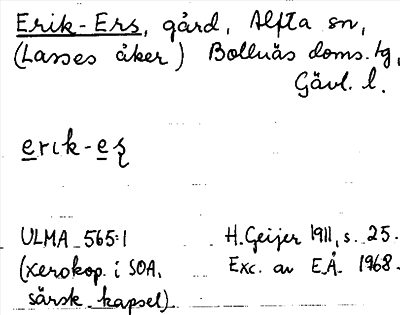 Erik-Ers, gård, Alfta sn,
(Lasses åker) Bollnäs doms.tg,
Gävl. l.
erik-eʂ
ULMA 565:1
(xerokop. i SOA,
särsk kapsel).
H. Geijer 1911, s. 25.
Exc. av E.Å. 1968.